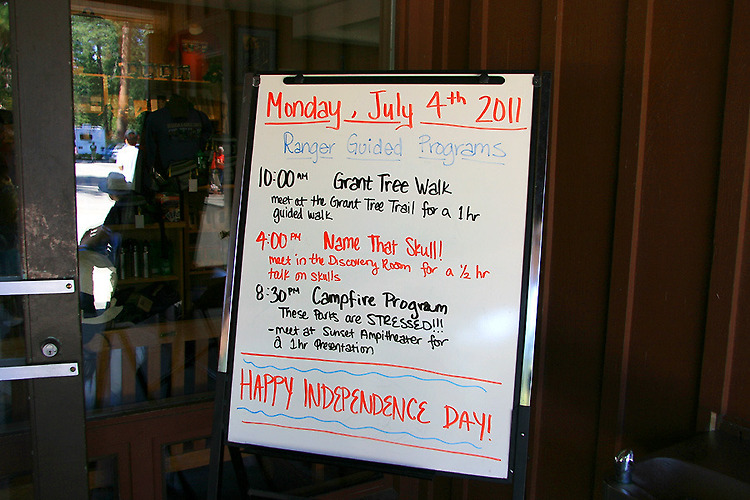 Monday, July 4th 2011
Ranger Guided Programs
10:00 AM Grant Tree Walk
meet at the Grant Tree Trail for a 1 hr
guided walk
4:00 PM Name That Skull!
meet in the Discovery Room for a ½ hr
talk on skulls
8:30 PM Campfire Program
These Parks are STRESSED!!!
- meet at Sunset Ampitheater for
a 1hr Presentation
HAPPY INDEPENDENCE DAY!